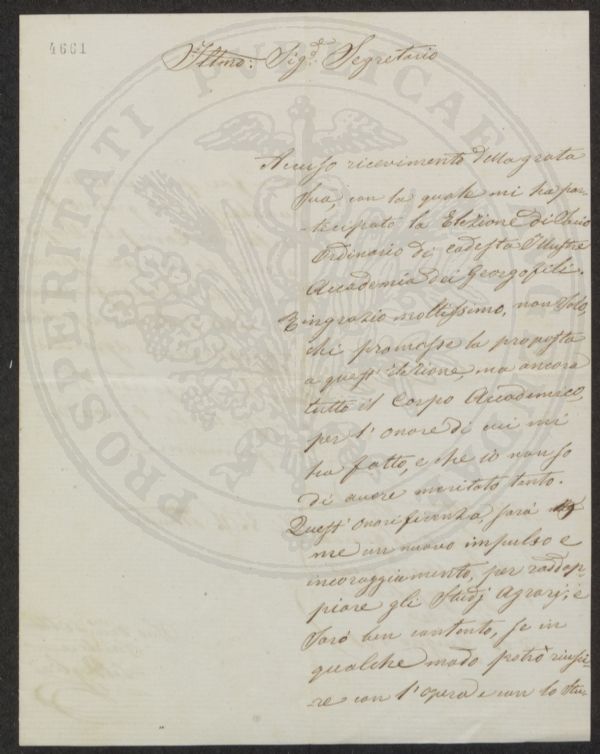 4661
Illmo: Sig.r Segretario
Accuso ricevimento della grata
sua con la quale mi ha par-
-tecipato la Elezione di Socio
Ordinario di codesta Illustre
Accademia dei Georgofili.
Ringrazio moltissimo, non solo,
chi promosse la proposta
a quest'elezione, ma ancora
tutto il Corpo Accademico,
per l'onore di cui mi
ha fatto, e che io non so
di avere meritato tanto.
Quest'onorificenza, sarà
me un nuovo impulso e
incoraggiamento, per raddop-
piare gli Studj Agrarj, e
sarò ben contento, se in
qualche modo potrò riusci-
-re con l'opera e con lo Stu-
PROSPERITATI PUBLICAE AUGENDAE